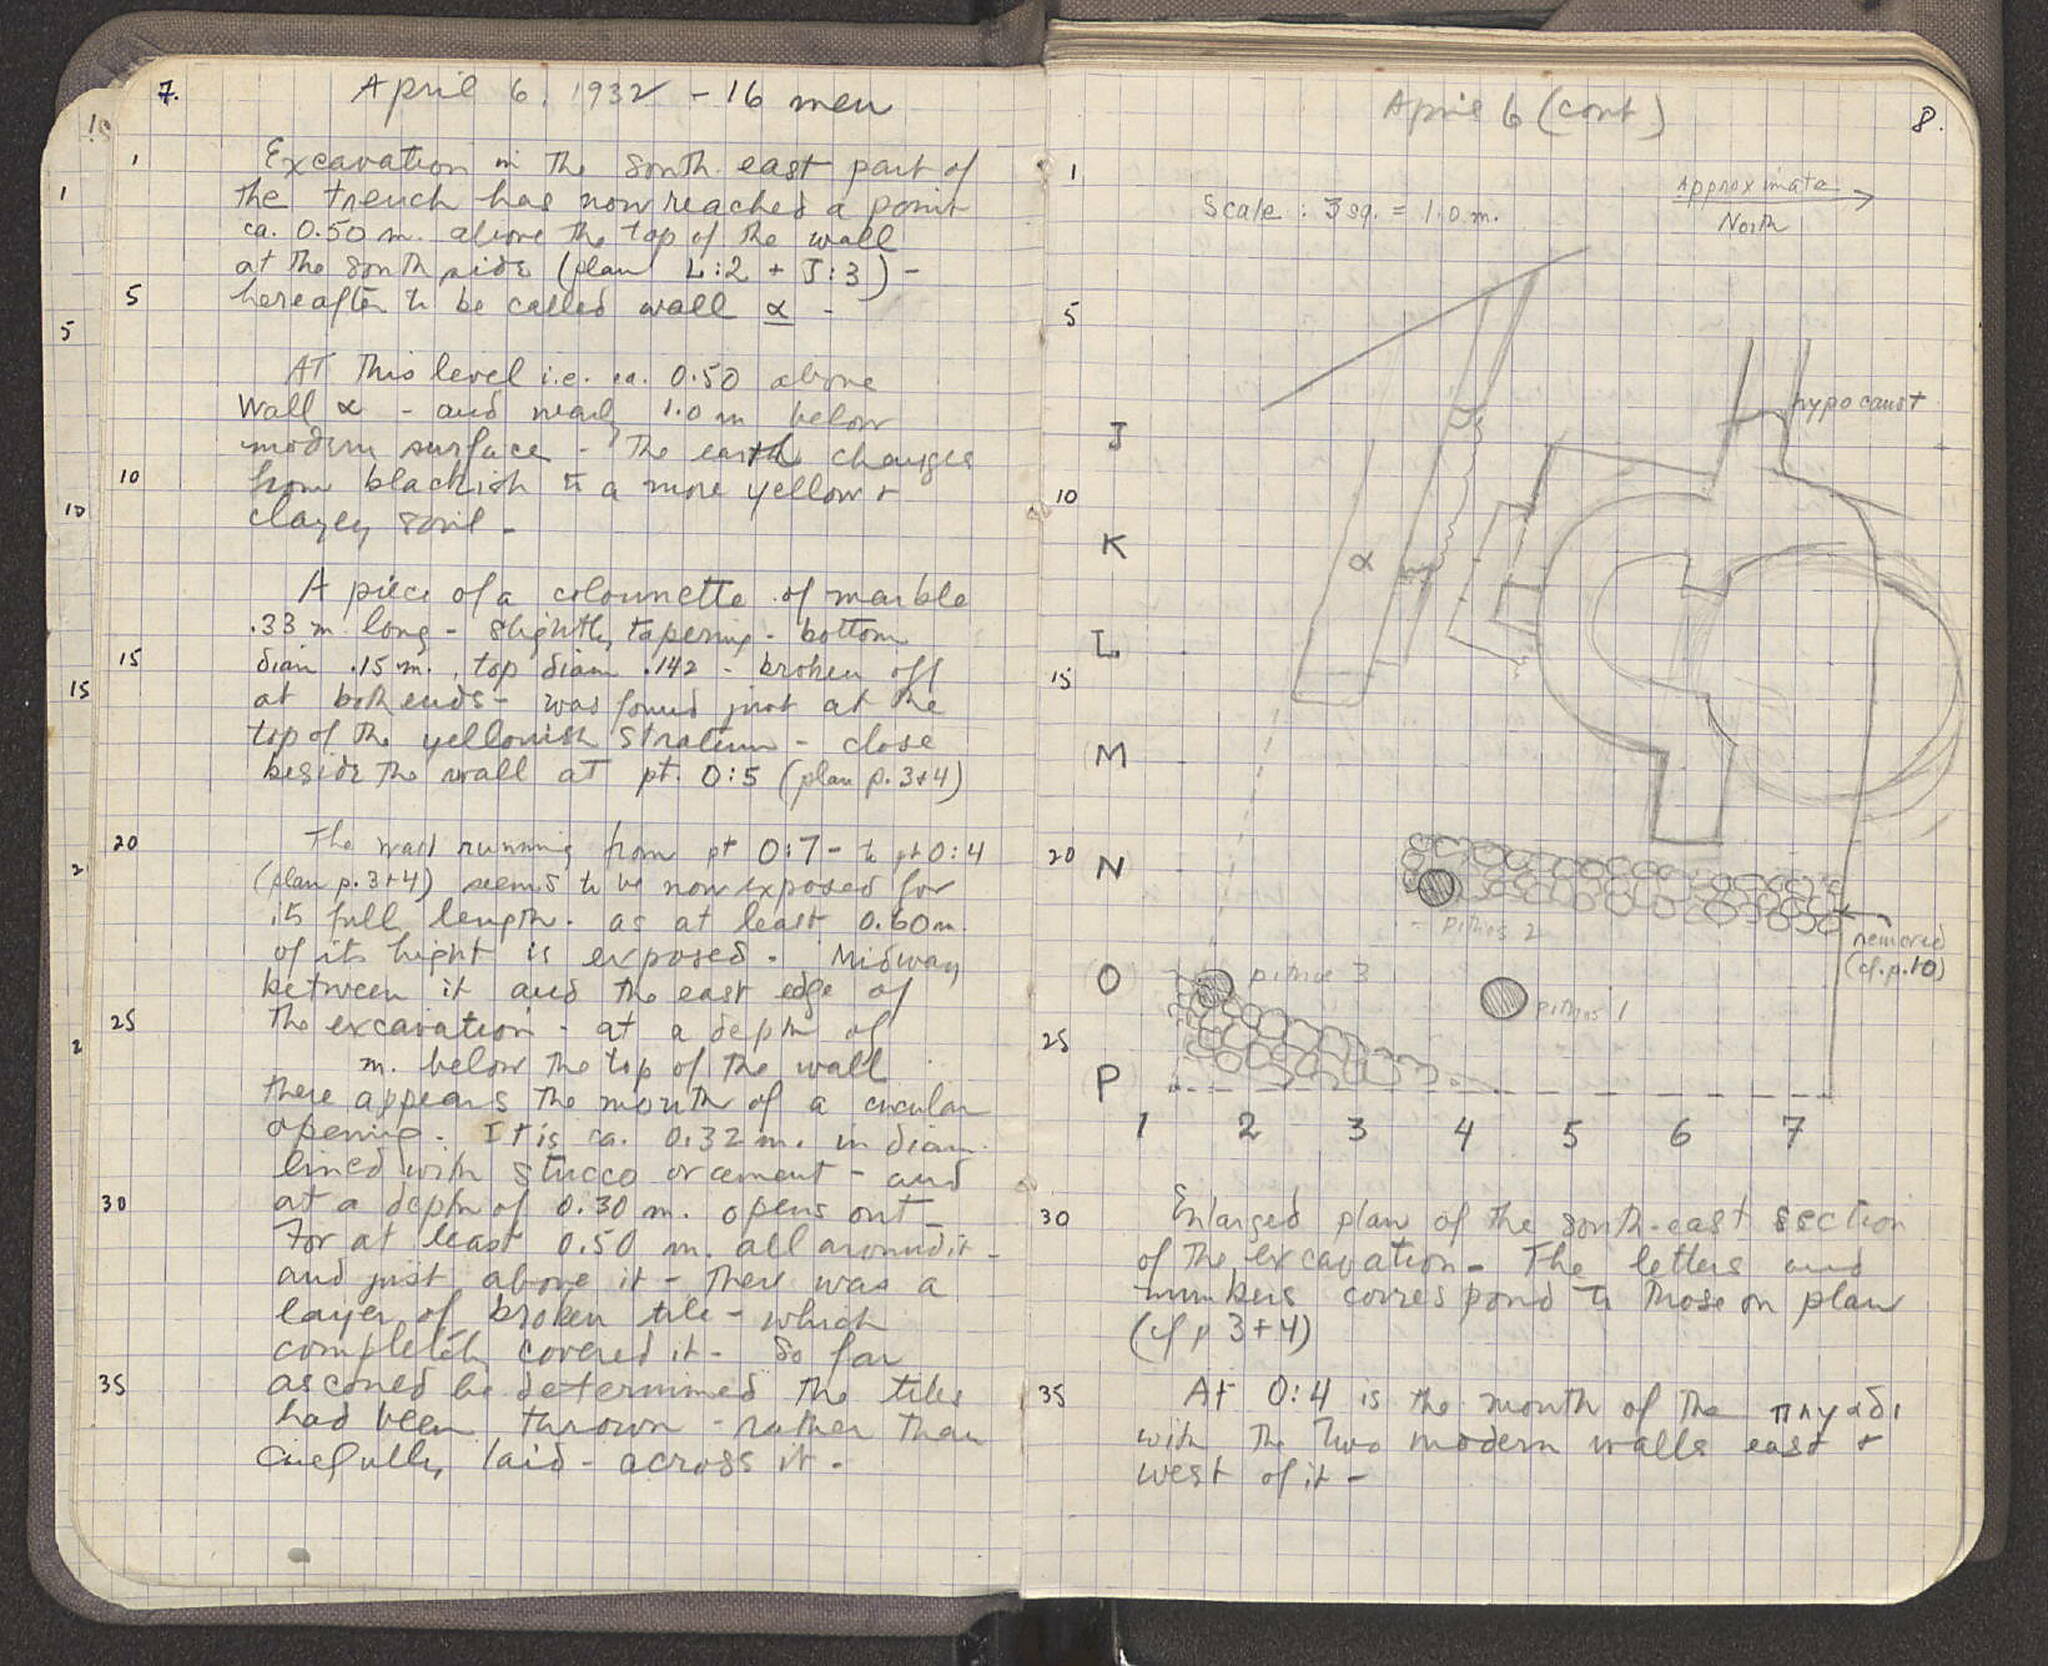 7.
April 6, 1932 - 16 men
1
Excavation in the south east part of
the trench has now reached a point
ca. 0.50 m. above the top of the wall
at the south side (plan L:2 + J:3) -
5
hereafter to be called wall α -
At this level i.e. ca. 0.50 above
Wall α - and nearly 1.0 m below
modern surface - the earth changes
10
from blackish to a more yellow +
clayey soil -
A piece of a colonnette of marble
.33 m long - slightly tapering - bottom
15
diam .15 m., top diam .142 - broken off
at both ends - was found just at the
top of the yellowish stratum - close
beside the wall at pt. O:5 (plan p. 3+4)
20
The wall running from pt O:7 - to pt O:4
(plan p. 3+4) seems to be now exposed for
its full length. as at least 0.60 m.
of its hight is exposed. Midway
between it and the east edge of
25
the excavation - at a depth of
m. below the top of the wall
there appears the mouth of a circular
opening. It is ca. 0.32 m. in diam.
lined with stucco or cement - and
30
at a depth of 0.30 m. opens out -
For at least 0.50 m. all around it -
and just above it - there was a
layer of broken tile - which
completely covered it - So far
35
as could be determined the tiles
had been thrown - rather than
carefully laid - across it.
1
5
10
15
April 6 (cont)
8.
1
Scale : 3 sq. = 1.0 m.
Approximate
North
5
hypocaust
J
10
K
α
L
15
M
20
N
pithos 2
removed
(cf. p. 10)
O
pithos 3
pithos 1
25
P
1 2 3 4 5 6 7
30
Enlarged plan of the south-east section
of the excavation - The letters and
numbers correspond to those on plan
(cf p 3+4)
35
At O:4 is the mouth of the πηγάδι
with the two modern walls east +
west of it -